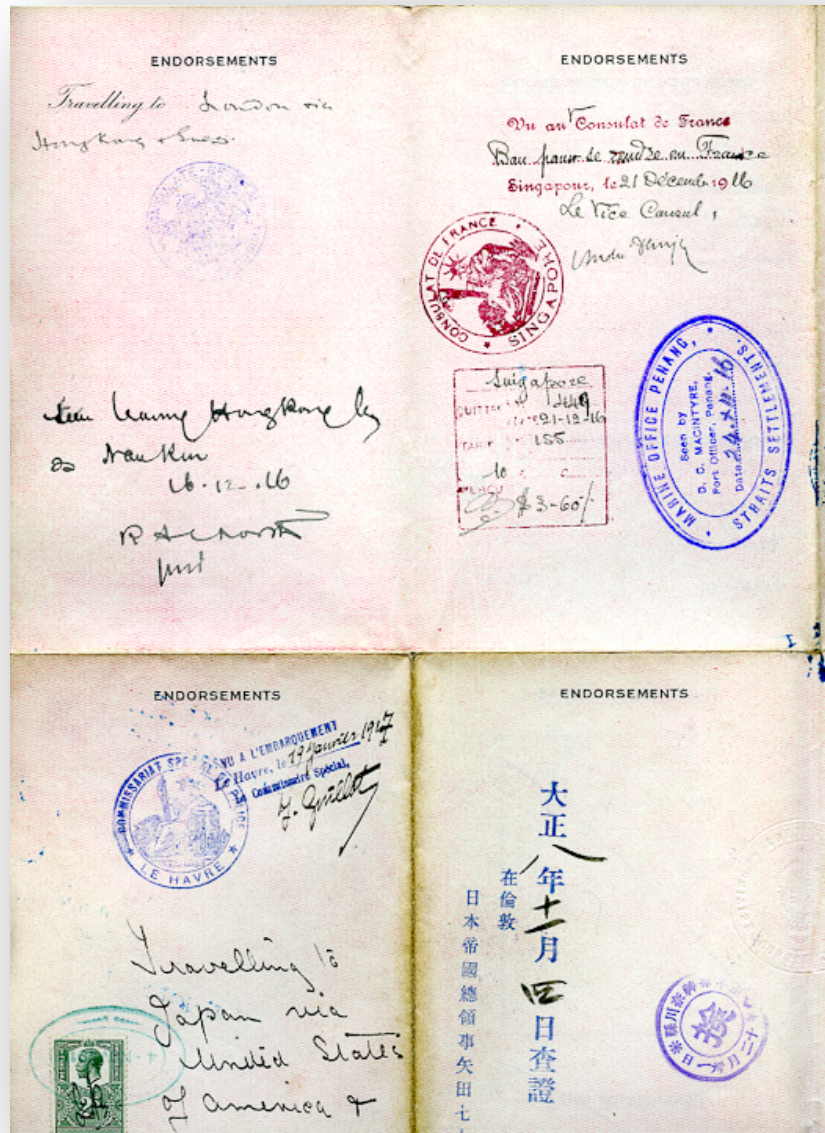 ENDORSEMENTS
Travelling to London via
Hongkong & Suez.
leaving Hongkong by
Nankin
16.12.16
ENDORSEMENTS
Vu au Consulat de France
Bon pour se rendre en France
Singapour, le 21 Décemb. 1916
Le Vice Consul,
CONSULAT DE FRANCE
SINGAPORE
Singapore
21-12-16
TARIF 155
10
$3-60/
MARINE OFFICE PENANG,
STRAITS SETTLEMENTS.
Seen by
D. C. MACINTYRE,
Port Officer, Penang.
Date 24.XII.16
ENDORSEMENTS
COMMISSARIAT SPECIAL
LE HAVRE
VU A L'EMBARQUEMENT
Le Havre, le 19 Janvier 1917
Le Commissaire Spécial,
J. Guillot
Travelling to
Japan via
United States
of America &
ENDORSEMENTS
大正八年十一月四日査證
在倫敦
日本帝國總領事矢田七